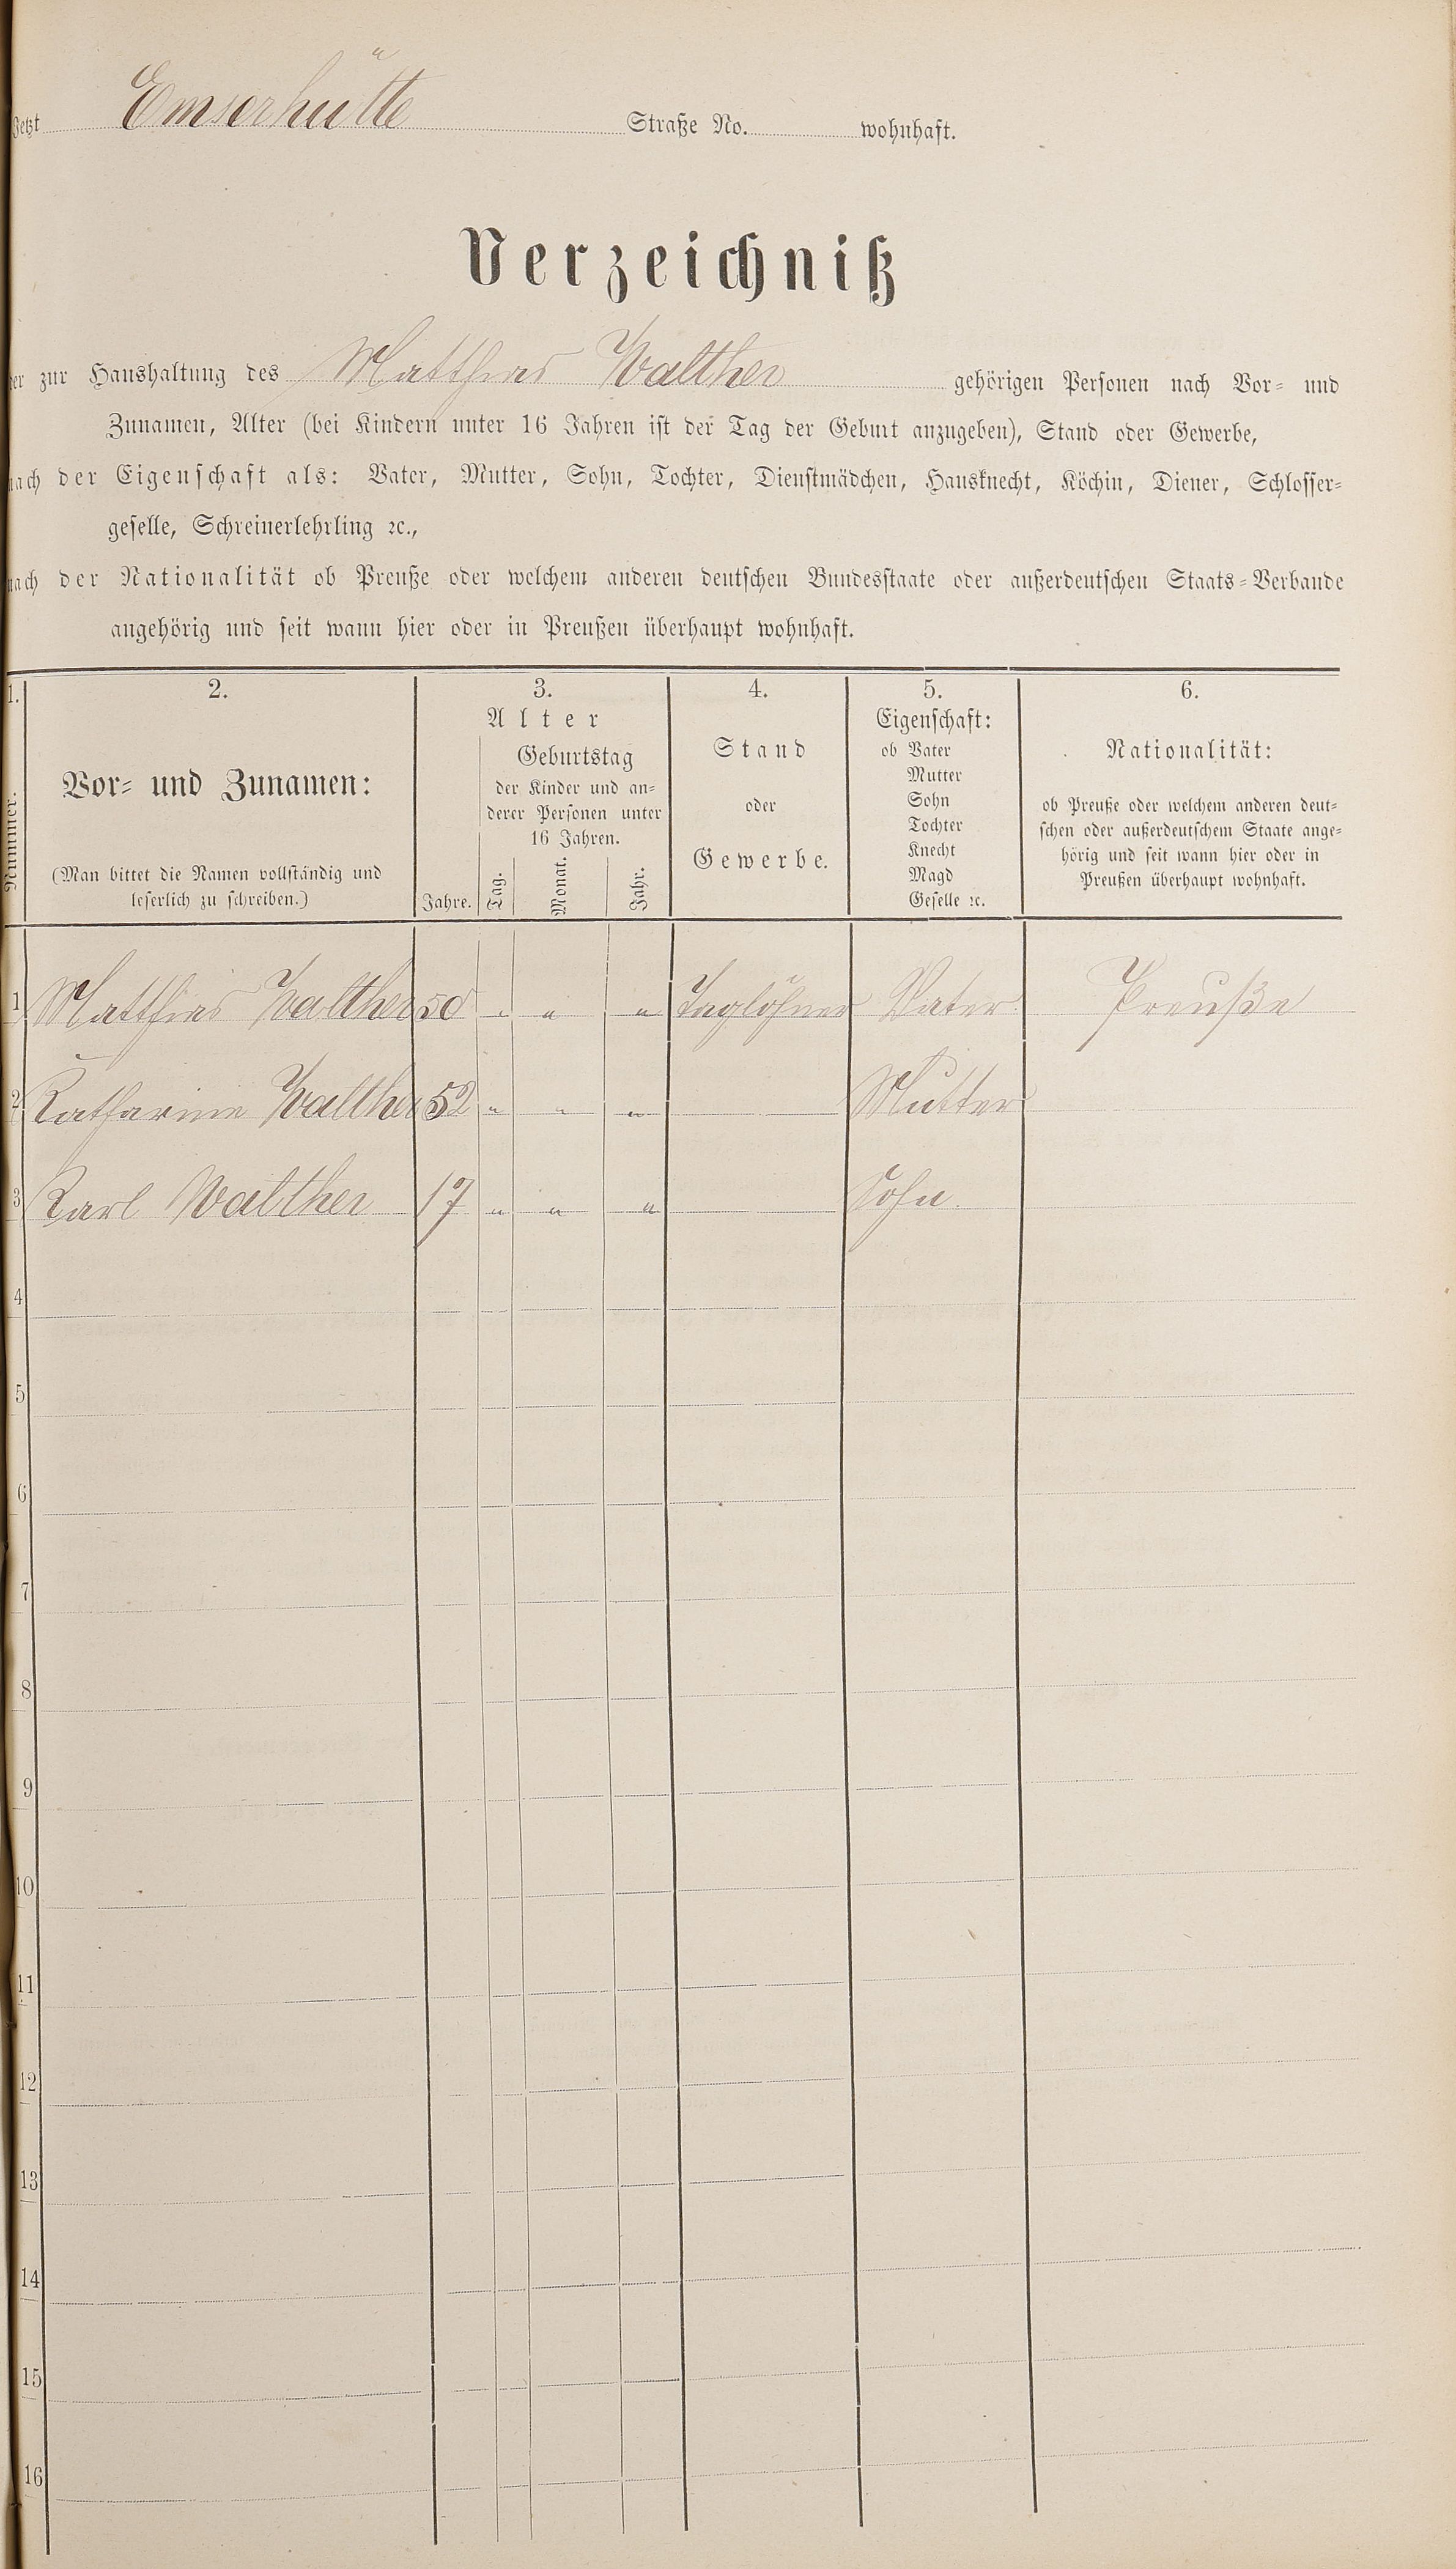 Jetzt Emserhütte Straße No. wohnhaft.
Verzeichniß
der zur Haushaltung des Matthias Walther gehörigen Personen nach Vor- und
Zunamen, Alter (bei Kindern unter 16 Jahren ist der Tag der Geburt anzugeben), Stand oder Gewerbe,
nach der Eigenschaft als: Vater, Mutter, Sohn, Tochter, Dienstmädchen, Hausknecht, Köchin, Diener, Schlosser-
geselle, Schreinerlehrling ꝛc.,
nach der Nationalität ob Preuße oder welchem anderen deutschen Bundesstaate oder außerdeutschen Staats-Verbande
angehörig und seit wann hier oder in Preußen überhaupt wohnhaft.
1.
Nummer.
2.
Vor- und Zunamen:
(Man bittet die Namen vollständig und
leserlich zu schreiben.)
3.
Alter
Jahre.
Geburtstag
der Kinder und an-
derer Personen unter
16 Jahren.
Tag. Monat. Jahr.
4.
Stand
oder
Gewerbe.
5.
Eigenschaft:
ob Vater
Mutter
Sohn
Tochter
Knecht
Magd
Geselle ꝛc.
6.
Nationalität:
ob Preuße oder welchem anderen deut-
schen oder außerdeutschem Staate ange-
hörig und seit wann hier oder in
Preußen überhaupt wohnhaft.
1 Matthias Walther 50 " " " Taglöhner Vater Preuße
2 Katharine Walther 52 " " " Mutter
3 Karl Walther 17 " " " Sohn.
4
5
6
7
8
9
10
11
12
13
14
15
16